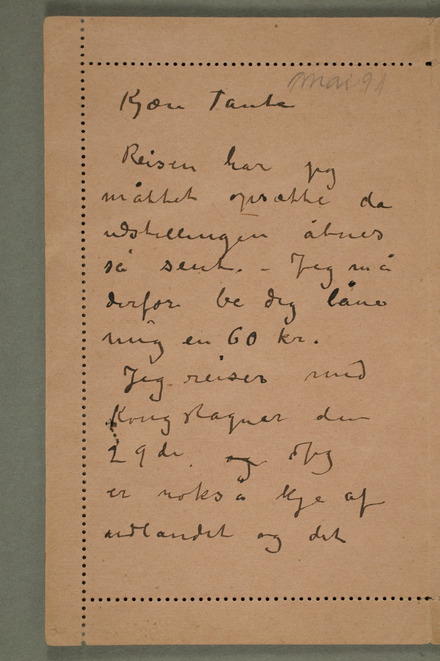 Mai 91
Kjære Tante
Reisen har jeg
måttet opsætte da
udstillingen åbnes
så sent. – Jeg må
derfor be dig låne
mig en 60 kr.
Jeg reiser med
Kong Magnus den
29de og Jeg
er nokså kje af
udlandet og det